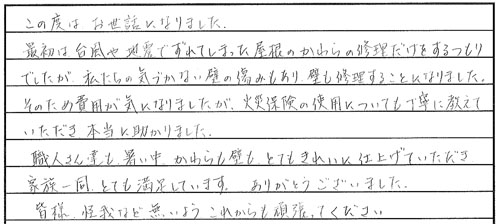 この度は お世話になりました.
最初は台風や地震でずれてしまった屋根のかわらの修理だけをするつもり
でしたが、私たちの気づかない壁の傷みもあり、壁も修理することになりました。
そのため費用が気になりましたが、火災保険の使用についても丁寧に教えて
いただき 本当に助かりました.
職人さん達も 暑い中 かわらも壁も、とてもきれいに仕上げていただき
家族一同 とても満足しています. ありがとうございました.
皆様 怪我など無いよう これからも頑張ってください